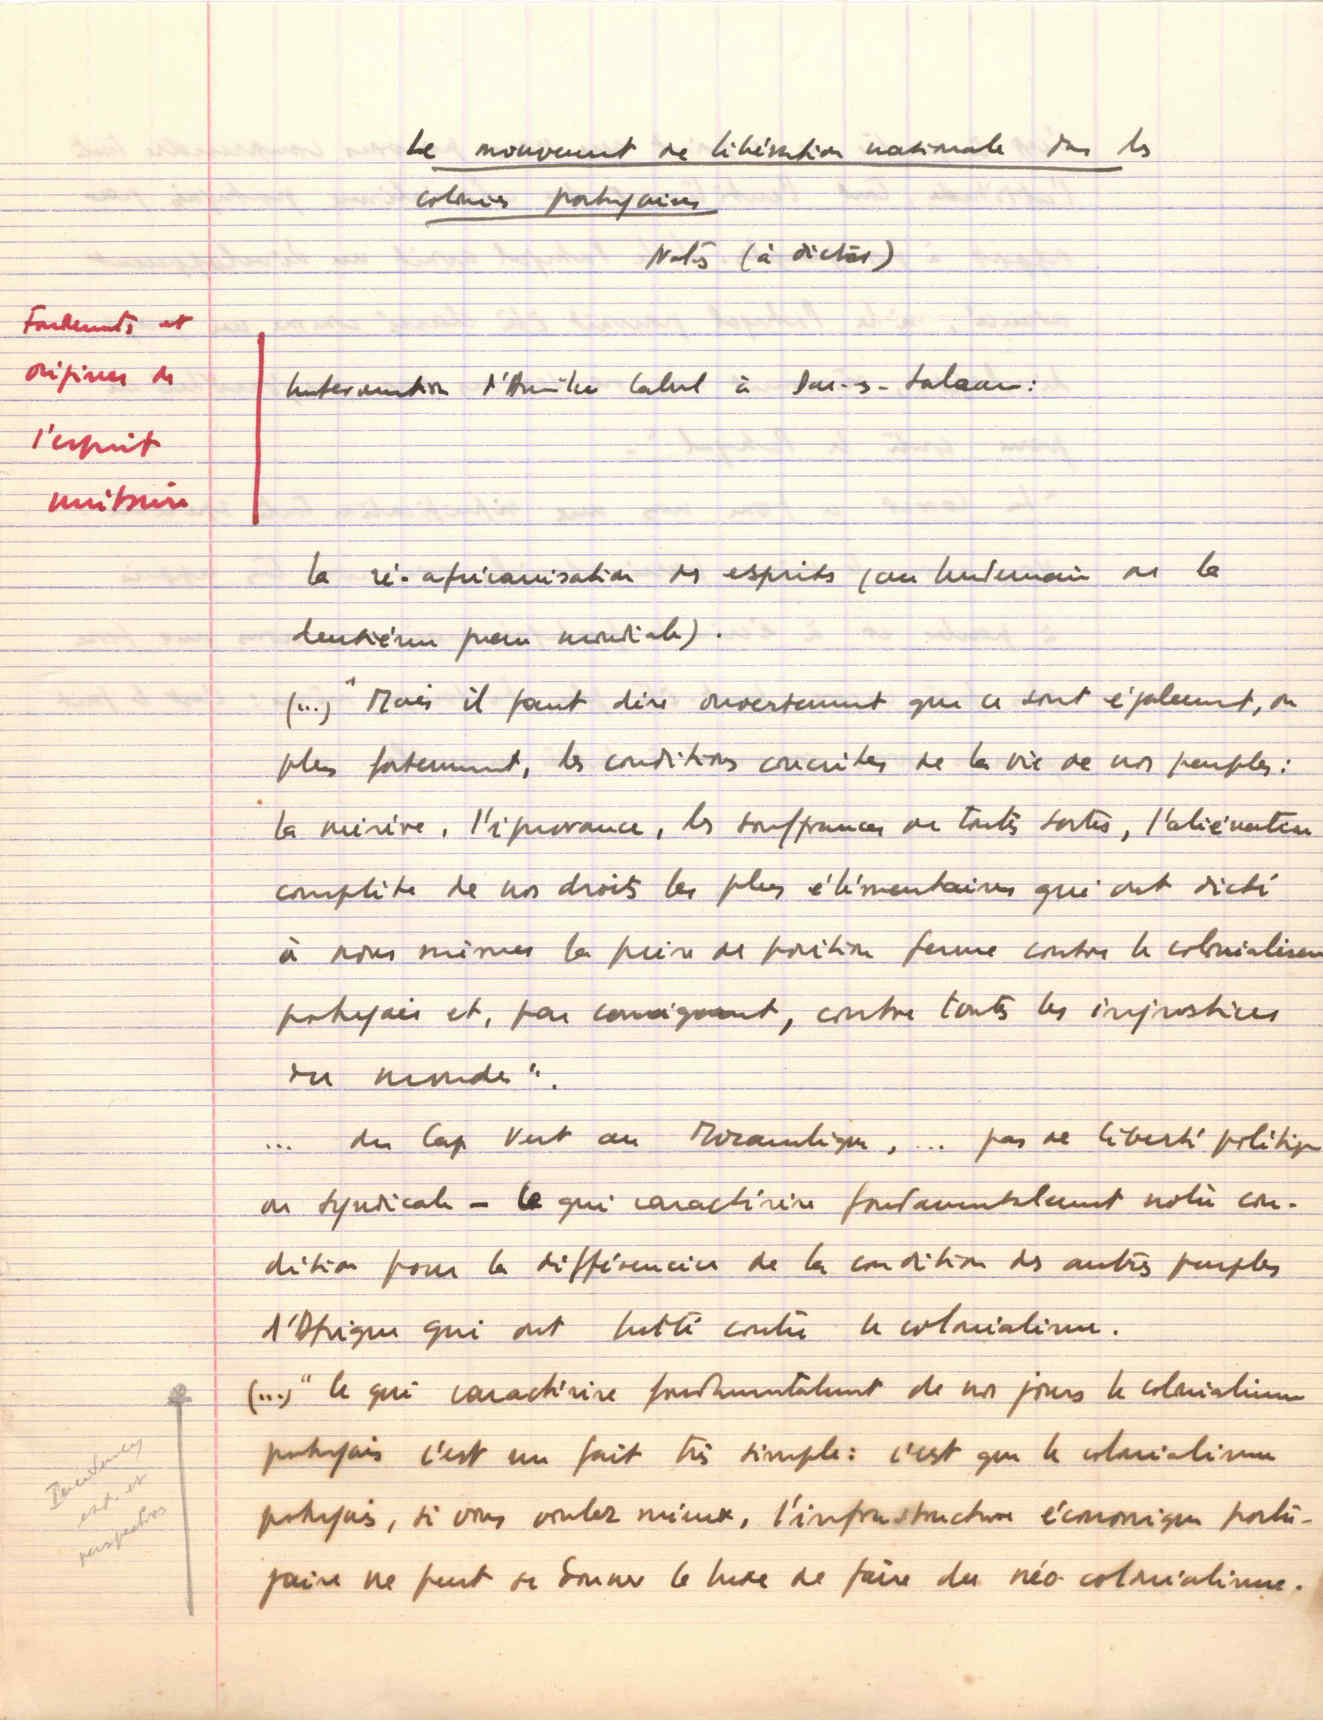 Le mouvement de libération nationale dans les
colonies portugaises
Notes (à dicter)
Fondements et
origines de
l'esprit
unitaire
Intervention d'Amilcar Cabral à Dar-es-Salaam:
la ré-africanisation des esprits (au lendemain de la
deuxième guerre mondiale).
(...) "Mais il faut dire ouvertement que ce sont également, ou
plus fortement, les conditions concrètes de la vie de nos peuples:
la misère, l'ignorance, les souffrances de toutes sortes, l'aliénation
complète de nos droits les plus élémentaires qui ont dicté
à nous mêmes la prise de position ferme contre le colonialisme
portugais et, par conséquent, contre toutes les injustices
du monde".
... du Cap Vert au Mozambique, ... pas de liberté politique
ou syndicale - ce qui caractérise fondamentalement notre con-
dition pour la différencier de la condition des autres peuples
d'Afrique qui ont lutté contre le colonialisme.
(...) "Ce qui caractérise fondamentalement de nos jours le colonialisme
portugais c'est un fait très simple: c'est que le colonialisme
portugais, si vous voulez mieux, l'infrastructure économique portu-
gaise ne peut se donner le luxe de faire du néo-colonialisme.
et
perspectives